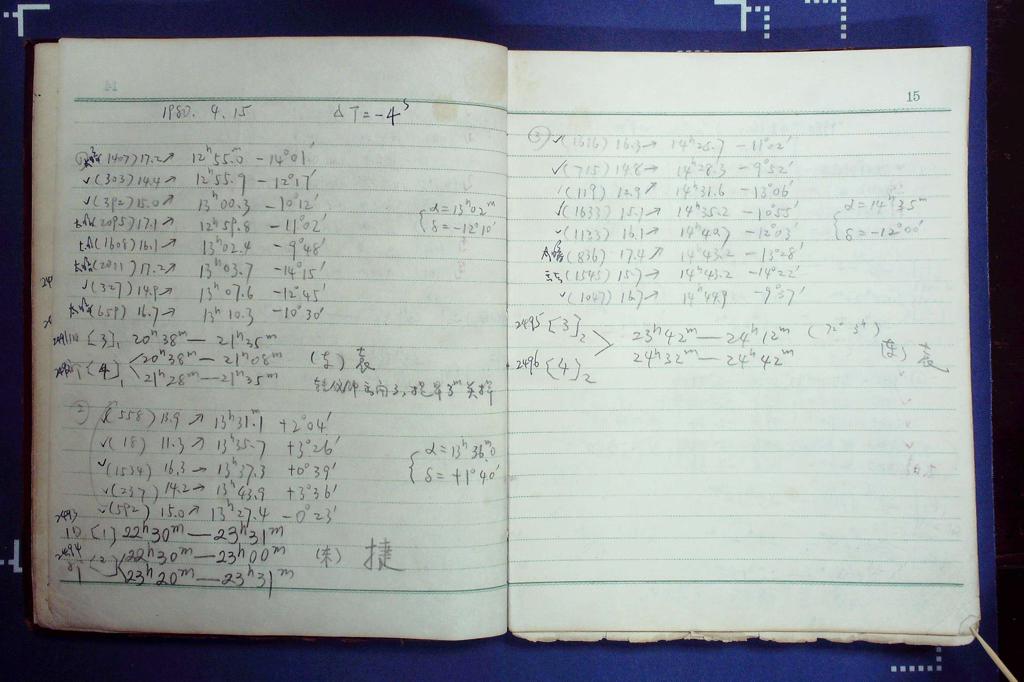 1980. 4. 15 ΔT=-4ˢ
① 太暗(1407)17.2↗ 12ʰ55ᵐ.0 -14°01′
✓(303)14.4→ 12ʰ55.9 -12°17′
✓(392)15.0↗ 13ʰ00.3 -10°12′ α=13ʰ02ᵐ
太暗(2095)17.1↗ 12ʰ59.8 -11°02′ δ=-12°10′
(1608)16.1↗ 13ʰ02.4 -9°48′
太暗(2011)17.2↗ 13ʰ03.7 -14°15′
✓(327)14.9↗ 13ʰ07.6 -12°45′
太暗(659)16.7↗ 13ʰ10.3 -10°30′
[3]₁ 20ʰ38ᵐ—21ʰ35ᵐ
[4]₁ 20ʰ38ᵐ—21ʰ08ᵐ
21ʰ28ᵐ—21ʰ35ᵐ
② ✓(558)13.9↗ 13ʰ31ᵐ.1 +2°04′
✓(18) 11.3↗ 13ʰ35.7 +3°26′ α=13ʰ36ᵐ.0
✓(1534) 16.3→ 13ʰ37.3 +0°39′ δ=+1°40′
✓(237) 14.2→ 13ʰ43.9 +3°36′
✓(592) 15.0↗ 13ʰ27.4 -0°23′
2493
[1] 22ʰ30ᵐ—23ʰ31ᵐ
2494 [2] 22ʰ30ᵐ—23ʰ00ᵐ (东) 捷
23ʰ20ᵐ—23ʰ31ᵐ
15
③ ✓(1616) 16.3→ 14ʰ25.7 -11°02′
✓(715) 14.8→ 14ʰ28.3 -9°52′
(119) 12.9↗ 14ʰ31.6 -13°06′
✓(1633) 15.1↗ 14ʰ35.2 -10°55′ α=14ʰ35ᵐ
✓(1133) 16.1↗ -12°03′ δ=-12°00′
太暗(836) 17.4↗ 14ʰ43.2 -13°28′
(1545) 15.7→ 14ʰ43.2 -14°22′
✓(1047) 16.7↗ 14ʰ44.9
2495 [3]₂ 23ʰ42ᵐ—24ʰ12ᵐ
2496 [4]₂ 24ʰ32ᵐ—24ʰ42ᵐ